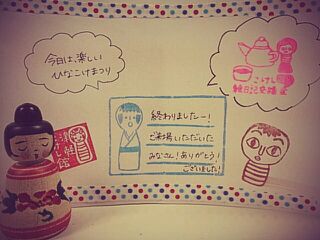 今日は楽しい
ひなこけまつり
こけし
絵日記交換室
終わりましたー!
ご来場いただいた
みなさん!ありがとう!
ございました!
津軽
こけし
館